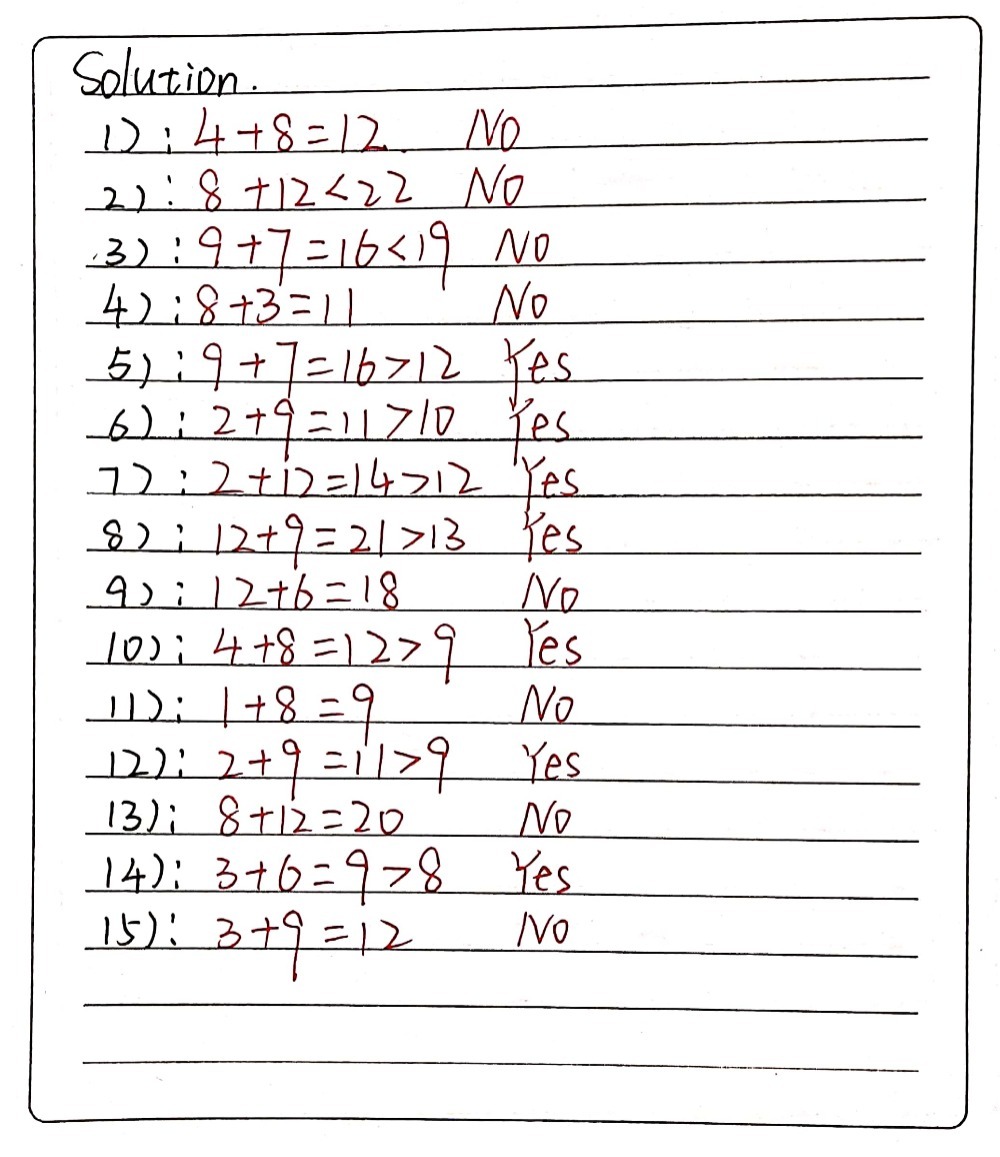 Solution.
1): 4+8=12. NO
2): 8+12<22 NO
3): 9+7=16<19 NO
4): 8+3=11 NO
5): 9+7=16>12 Yes
6): 2+9=11>10 Yes
7): 2+12=14>12 Yes
8): 12+9=21>13 Yes
9): 12+6=18 NO
10): 4+8=12>9 Yes
11): 1+8=9 NO
12): 2+9=11>9 Yes
13): 8+12=20 NO
14): 3+6=9>8 Yes
15): 3+9=12 NO